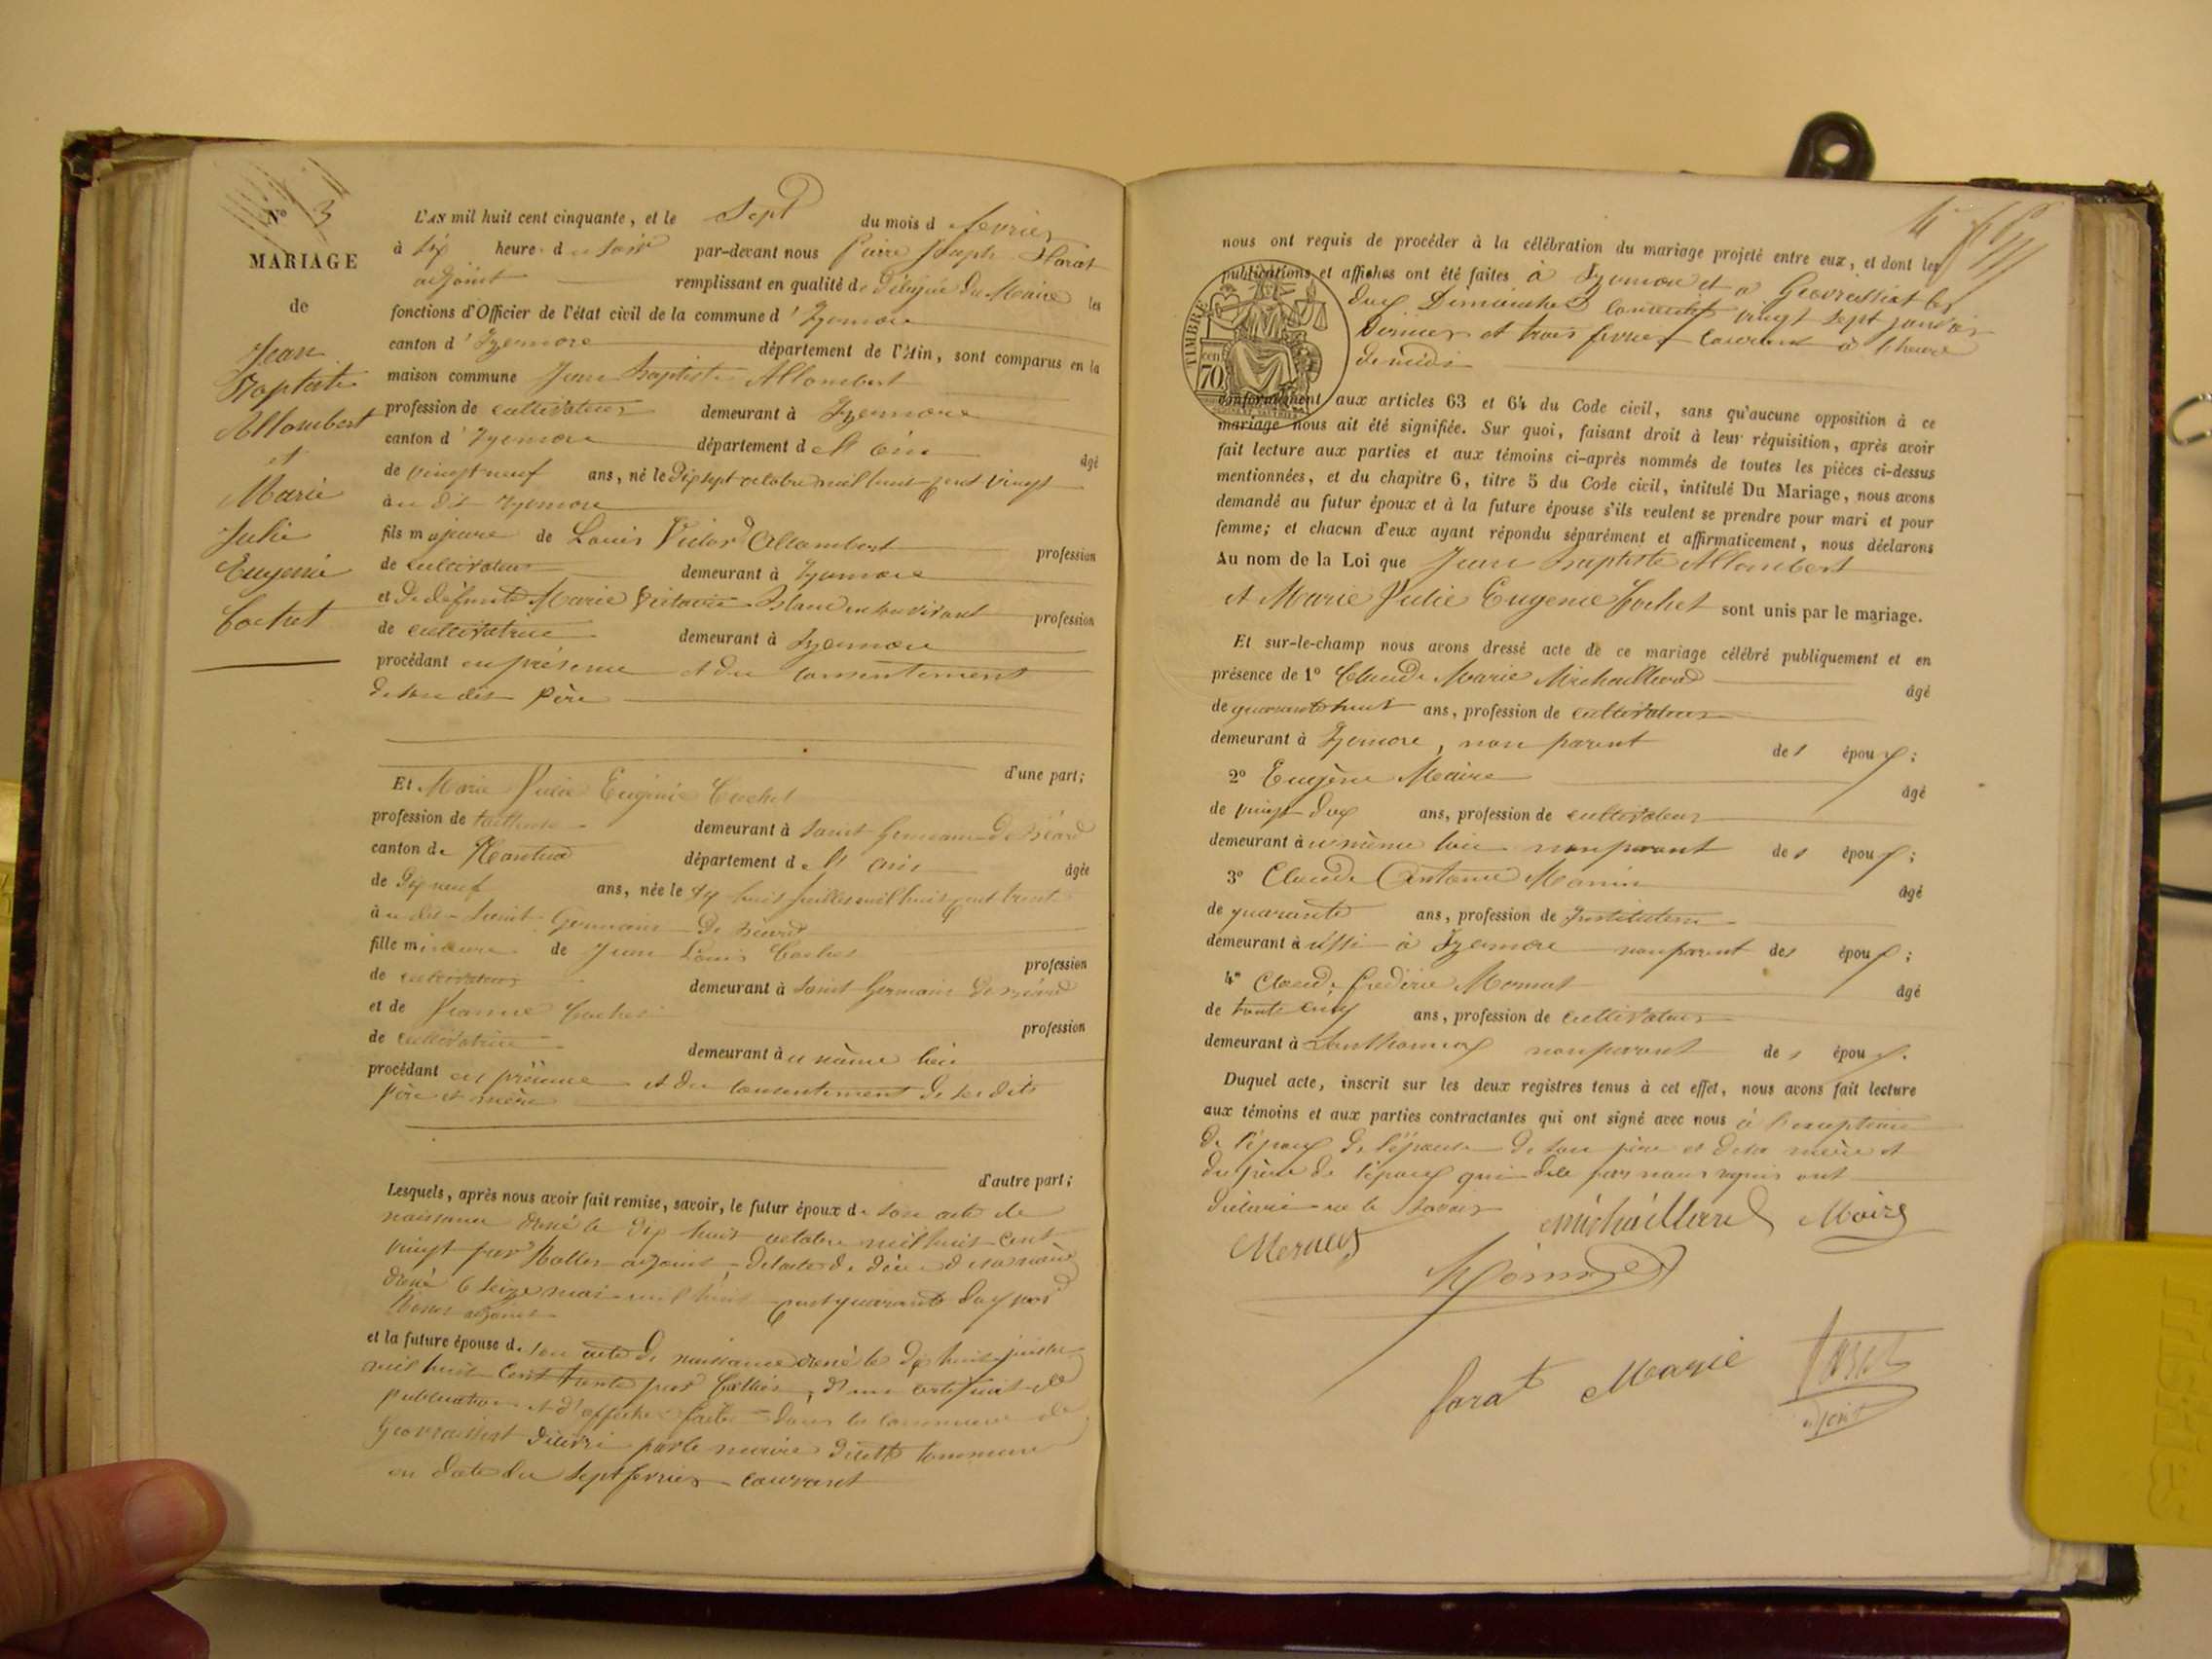 Nº 3
MARIAGE
de
Jean
Baptiste
Allombert
et
Marie
Julie
Eugenie
Cochet
L'AN mil huit cent cinquante, et le Sept du mois d fevrier
à Six heure du soir par-devant nous Pierre Joseph
adjoint remplissant en qualité de délégué du Maire les
fonctions d'Officier de l'état civil de la commune d'Izernore
canton d'Izernore département de l'Ain, sont comparus en la
maison commune Jean Baptiste Allombert
profession de cultivateur demeurant à Izernore
canton d'Izernore département de l'Ain âgé
de vingt neuf ans, né le dix sept octobre mil huit cent vingt
au dit Izernore
fils majeure de Louis Victor Allombert profession
de cultivateur demeurant à Izernore
et de défunte Marie Victoire en son vivant profession
de cultivatrice demeurant à Izernore
procédant en présence et du consentement
de son dit père
d'une part;
Et Marie Julie Eugénie Cochet
profession de demeurant à Saint Germain de Béard
canton de Nantua département de l'Ain âgée
de dix neuf ans, née le dix huit juillet mil huit cent trente
au dit Saint Germain de Béard
fille mineure de Jean Louis Cochet profession
de cultivateur demeurant à Saint Germain de Béard
et de Jeanne Cochet profession
de cultivatrice demeurant au même lieu
procédant en présence et du consentement de ses dits
père et mère
d'autre part;
Lesquels, après nous avoir fait remise, savoir, le futur époux de son acte de
naissance dressé le dix huit octobre mil huit cent
vingt par adjoint, de l'acte de décès de sa mère
dressé le seize mai mil huit cent quarante deux par
adjoint
et la future épouse de son acte de naissance dressé le dix huit juillet
mil huit cent trente par d'un certificat de
publication et d'affiche faite dans la commune de
Geovressiat délivré par le maire de cette commune
en date du sept fevrier courant
nous ont requis de procéder à la célébration du mariage projeté entre eux, et dont les
publications et affiches ont été faites à Izernore et à Geovressiat les
deux Dimanches consécutifs vingt sept janvier
dernier et trois fevrier courant à l'heure
de midi
TIMBRE
70 cen
conformément aux articles 63 et 64 du Code civil, sans qu'aucune opposition à ce
mariage nous ait été signifiée. Sur quoi, faisant droit à leur réquisition, après avoir
fait lecture aux parties et aux témoins ci-après nommés de toutes les pièces ci-dessus
mentionnées, et du chapitre 6, titre 5 du Code civil, intitulé Du Mariage, nous avons
demandé au futur époux et à la future épouse s'ils veulent se prendre pour mari et pour
femme; et chacun d'eux ayant répondu séparément et affirmativement, nous déclarons
Au nom de la Loi que Jean Baptiste Allombert
et Marie Julie Eugenie Cochet sont unis par le mariage.
Et sur-le-champ nous avons dressé acte de ce mariage célébré publiquement et en
présence de 1º Claude Marie Michaillard âgé
de quarante huit ans, profession de cultivateur
demeurant à Izernore, non parent des époux;
2º Eugène Maire âgé
de vingt deux ans, profession de cultivateur
demeurant au même lieu non parent des époux;
3º Claude Antoine Monin âgé
de quarante ans, profession de Instituteur
demeurant aussi à Izernore non parent des époux;
4º Claude Frédéric âgé
de trente cinq ans, profession de cultivateur
demeurant à non parent des époux.
Duquel acte, inscrit sur les deux registres tenus à cet effet, nous avons fait lecture
aux témoins et aux parties contractantes qui ont signé avec nous à l'exception
de l'époux de l'épouse de son père et de sa mère et
du père de l'époux qui de ce par nous requis ont
déclaré ne le savoir
Michaillard Maire
Marie
adjoint